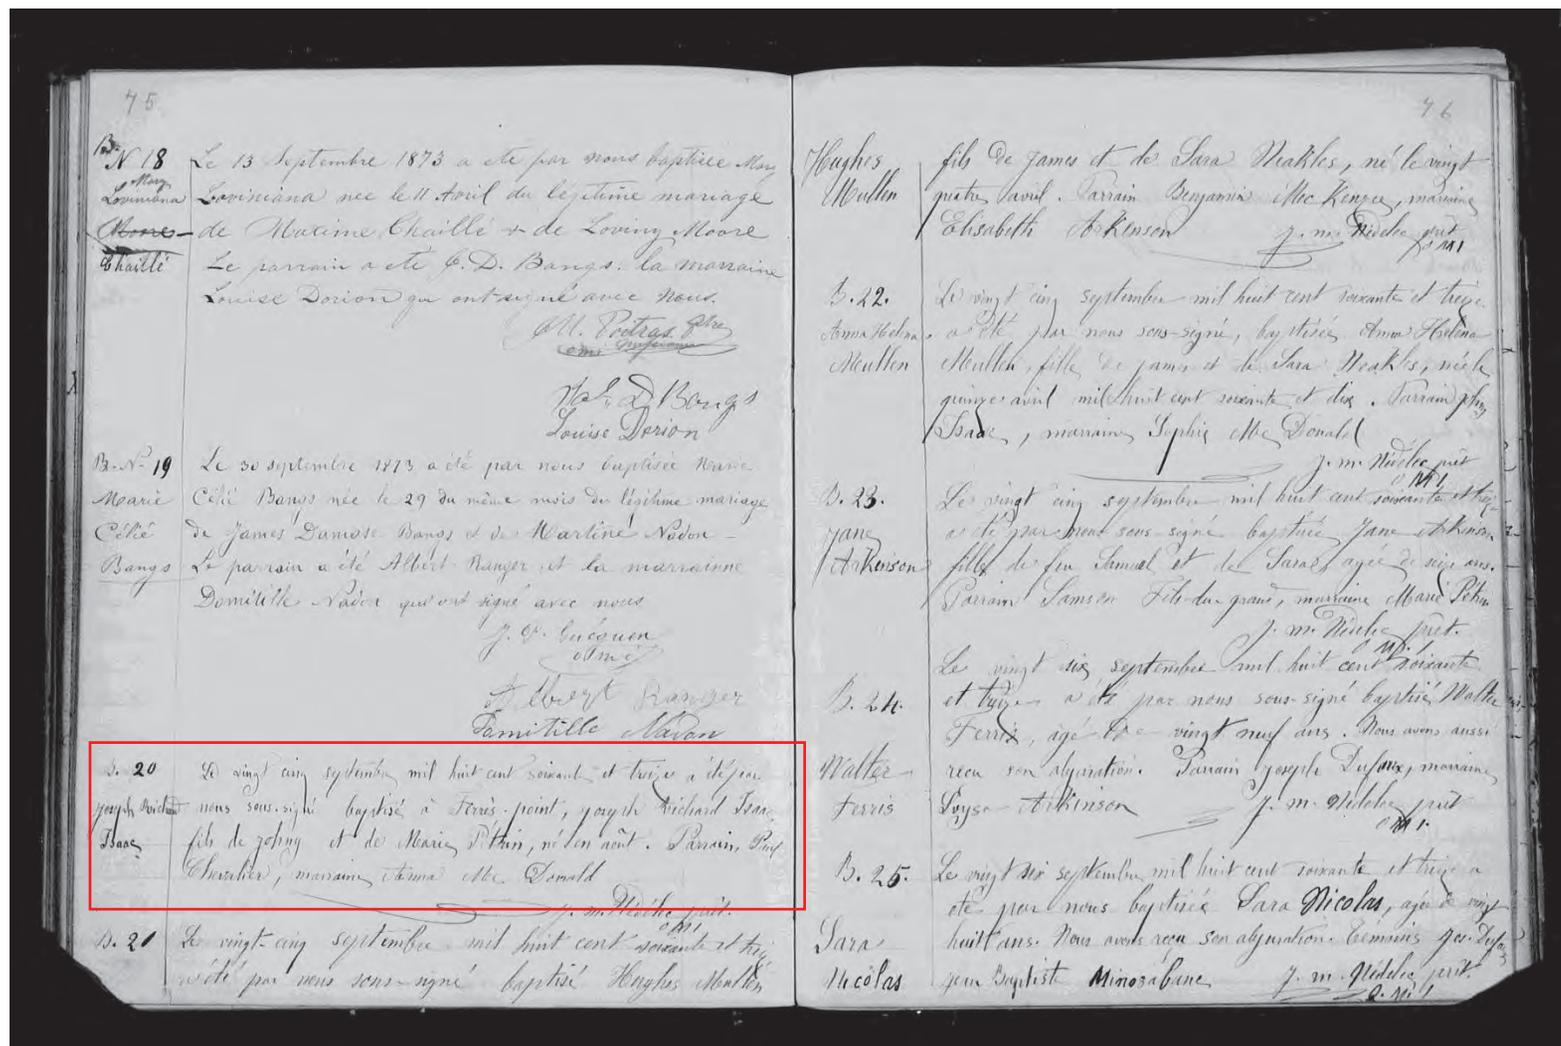 75
B.
N 18
Mary
Loviniana
Moore
Chaillé
Le 13 Septembre 1873 a ete par nous baptisée Mary
Loviniana née le 11 Avril du légitime mariage
de Maxime Chaillé & de Loviny Moore
Le parrain a ete J. D. Bangs. la marraine
Louise Dorion qui ont signé avec nous.
M. Poitras Ptre
omi
D Bangs
Louise Dorion
B. N. 19
Marie
Célié
Bangs
Le 30 septembre 1873 a été par nous baptisée Marie
Célié Bangs née le 29 du même mois du légitime mariage
de James Damase Bangs et de Martine Nadon -
Le parrain a été Albert Ranger et la marrainne
Domitille Nadon qui ont signé avec nous
J. P. Guéguen
o m i
Albert Ranger
Damitille Nadon
B. 20
Joseph Richard
Isaac
Le vingt cinq septembre mil huit cent soixante et treize a été par
nous sous-signé baptisé à Ferris-point, Joseph Richard Isaac,
fils de Johny et de Marie Pitkin, né en août. Parrain, Paul
Chevalier, marraine Anna Mc Donald
J. m. Nédelec prêt.
O M I
B. 21
Le vingt-cinq septembre mil huit cent soixante et treize
a été par nous sous-signé baptisé Hughes Mullen
76
Hughes
Mullen
fils de James et de Sara Neakles, né le vingt
quatre avril. Parrain Benjamin Mc Kenzee, marraine
Elisabeth Arkinson
J. m. Nédelec prêt
O M I
B. 22.
Anna Helena
Meullen
Le vingt cinq septembre mil huit cent soixante et treize
a été par nous sous-signé, baptisée Anna Helena
Meullen, fille de James et de Sara Neakles, née le
quinze avril mil huit cent soixante et dix. Parrain Johny
Isaac, marraine Sophie Mc Donald
J. m. Nédelec prêt
O M I
B. 23.
Jane
Arkinson
Le vingt cinq septembre mil huit cent soixante et treize
a été par nous sous-signé baptisée Jane Arkinson
fille de feu Samuel et de Sara, agée de seize ans.
Parrain Samson Fils-du-grand, marraine Marie Pitkin
J. m. Nédelec prêt.
O M I
B. 24.
Walter
Ferris
Le vingt six septembre mil huit cent soixante
et treize a été par nous sous-signé baptisé Walter
Ferris, agé de vingt neuf ans. Nous avons aussi
reçu son abjuration. Parrain Joseph Dufaux, marraine
Loysa Arkinson
J. m. Nédelec prêt
O M I
B. 25.
Sara
Nicolas
Le vingt six septembre mil huit cent soixante et treize a
été par nous baptisée Sara Nicolas, agée de vingt
huit ans. Nous avons reçu son abjuration. Temoins Jos. Dufaux
Jean Baptist Minozabane
J. m. Nédelec prêt.
O. M. I